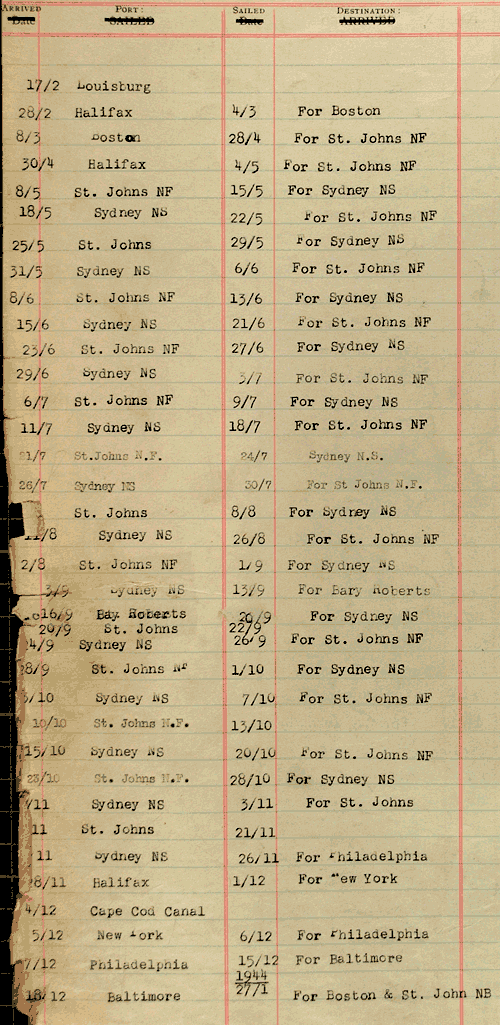 ARRIVED PORT: SAILED DESTINATION:
Date SAILED Date ARRIVED
17/2 Louisburg
28/2 Halifax 4/3 For Boston
8/3 Boston 28/4 For St. Johns NF
30/4 Halifax 4/5 For St. Johns NF
8/5 St. Johns NF 15/5 For Sydney NS
18/5 Sydney NS 22/5 For St. Johns NF
25/5 St. Johns 29/5 For Sydney NS
31/5 Sydney NS 6/6 For St. Johns NF
8/6 St. Johns NF 13/6 For Sydney NS
15/6 Sydney NS 21/6 For St. Johns NF
23/6 St. Johns NF 27/6 For Sydney NS
29/6 Sydney NS 3/7 For St. Johns NF
6/7 St. Johns NF 9/7 For Sydney NS
11/7 Sydney NS 18/7 For St. Johns NF
21/7 St.Johns N.F. 24/7 Sydney N.S.
26/7 Sydney NS 30/7 For St Johns N.F.
St. Johns 8/8 For Sydney NS
11/8 Sydney NS 26/8 For St. Johns NF
2/8 St. Johns NF 1/9 For Sydney NS
3/9 Sydney NS 13/9 For Bary Roberts
16/9 Bay Roberts 20/9 For Sydney NS
20/9 St. Johns 22/9
4/9 Sydney NS 26/9 For St. Johns NF
28/9 St. Johns NF 1/10 For Sydney NS
/10 Sydney NS 7/10 For St. Johns NF
10/10 St. Johns N.F. 13/10
15/10 Sydney NS 20/10 For St. Johns NF
23/10 St. Johns N.F. 28/10 For Sydney NS
/11 Sydney NS 3/11 For St. Johns
11 St. Johns 21/11
11 Sydney NS 26/11 For Philadelphia
28/11 Halifax 1/12 For New York
4/12 Cape Cod Canal
5/12 New York 6/12 For Philadelphia
7/12 Philadelphia 15/12 For Baltimore
1944
18/12 Baltimore 27/1 For Boston & St. John NB